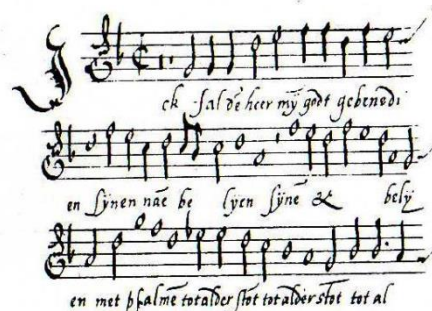 Ick sal dē heer mȳ godt gebenedi
en sÿnen nae be lÿen sÿnē & belÿ
en met psalmē tot alder stot tot alder stot tot al